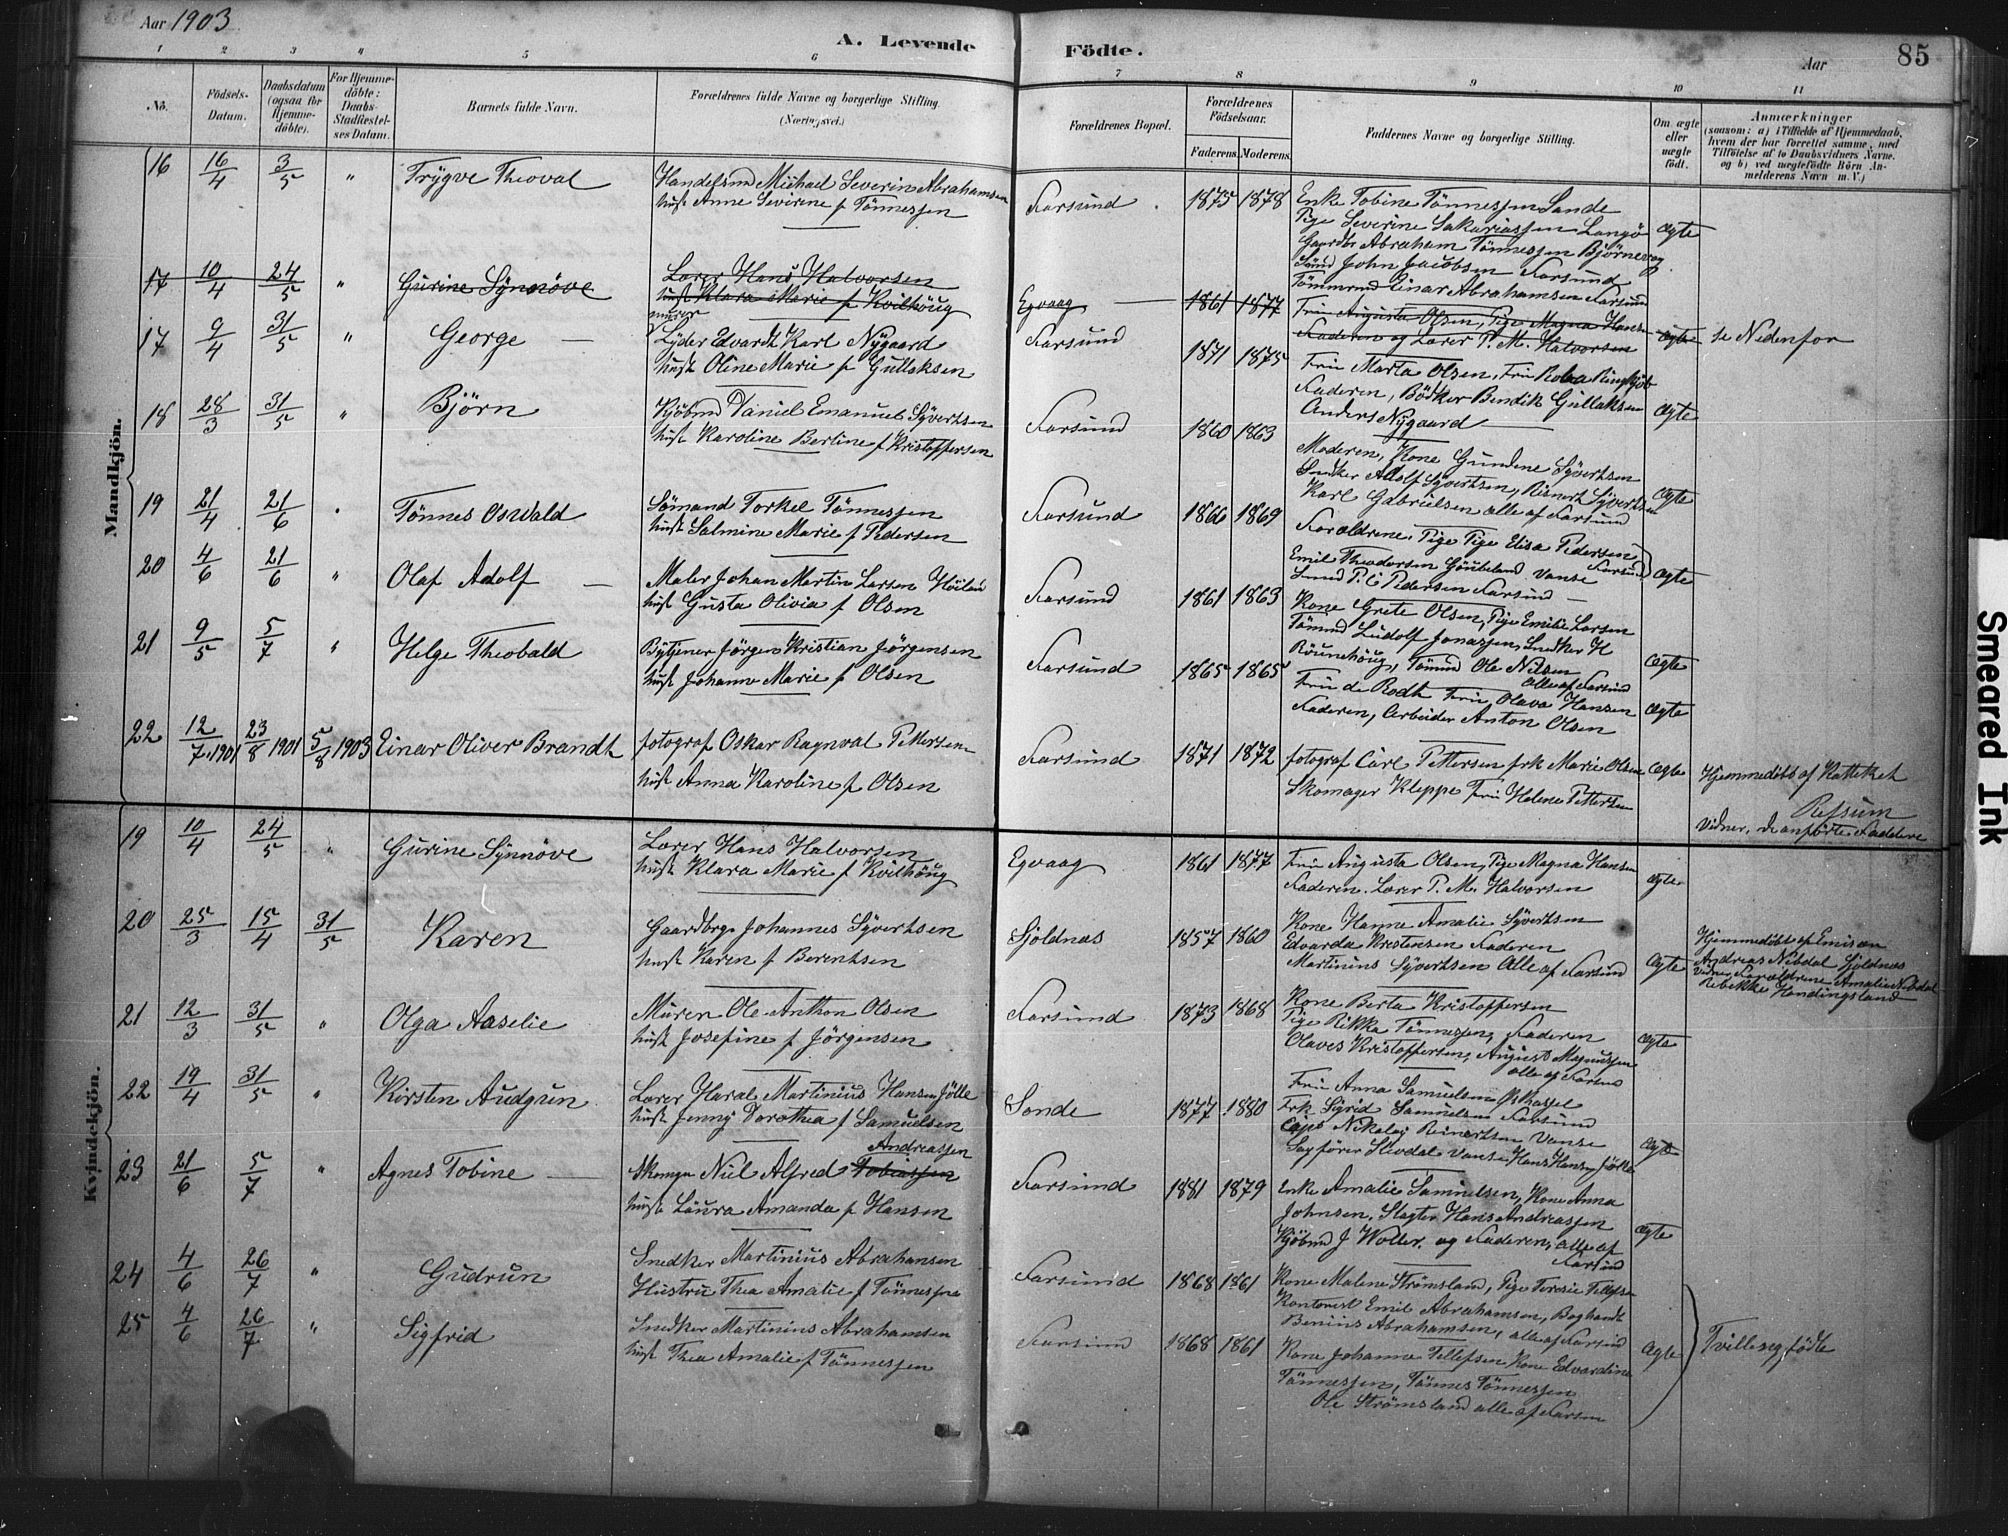 Aar 1903
A. Levende Födte.
Aar
85
1 2 3 4 5 6 7 8 9 10 11
No.
Födsels-
Datum.
Daabsdatum
(ogsaa for
Hjemme-
döbte).
For Hjemme-
döbte:
Daabs-
Stadfæstel-
ses Datum.
Barnets fulde Navn.
Forældrenes fulde Navne og borgerlige Stilling.
(Næringsvei.)
Forældrenes Bopæl.
Forældrenes
Födselsaar.
Faderens. Moderens.
Faddernes Navne og borgerlige Stilling.
Om ægte
eller
uægte
født.
Anmærkninger
(saasom: a) i Tilfælde af Hjemmedaab,
hvem der har forrettet samme, med
Tilföielse af to Daabsvidners Navne,
og b) ved uægtefödte Börn An-
melderens Navn m. V.)
Mandkjön.
16 16/4 3/5 " Trygve Theoval
Handelsmd Michael Severin Abrahamsen
hust Anne Severine f Tönnessen
Farsund 1875 1878
Enke Tobine Tönnessen Sande
Pige Severine Sakariassen Langö
Gaardbr Abraham Tönnessen Björnevag
Sömd John Jacobsen Farsund
Tömmermd Einar Abrahamsen Farsund
ægte
17 10/4 24/5 " Gurine Synnöve
Lærer Hans Halvorsen
hust Klara Marie f Kvilhöug
Egvaag 1861 1877
Fru Augusta Olsen, Pige Magna Hansen
Faderen og Lærer P. M. Halvorsen
ægte se Nedenfor
17 9/4 31/5 " George
murer
Lyder Edvardt Karl Nygaard
hust Oline Marie f Gullaksen
Farsund 1871 1875
Fru Marta Olsen, Fru
Faderen, Bödker Bendik Gullaksen
Anders Nygaard
ægte
18 28/3 31/5 " Björn
Kjöbmd Daniel Emanuel Syvertsen
hust Karoline Bertine f Kristoffersen
Farsund 1860 1863
Moderen, Kone Gundene Syvertsen
Snedker Adolf Syvertsen, Syvertsen
Karl Gabrielsen alle af Farsund
ægte
19 21/4 21/6 " Tönnes Oswald
Sömand Torkel Tönnessen
hust Salmine Marie f Pedersen
Farsund 1866 1869
Forældrene, Pige Pige Elisa Pedersen Farsund
Emil Theodorsen Vanse
P. C Pedersen Farsund
ægte
20 4/6 21/6 " Olaf Adolf
Maler Johan Martin Larsen
hust Gusta Olivia f Olsen
Farsund 1861 1863
Kone Grete Olsen, Pige Emilie Larsen
Tömmd Ludolf Jonassen, Snedker H
Tömmd Ole Nilsen
alle af Farsund
ægte
21 9/5 5/7 " Helge Theobald
Bytjener Jörgen Kristian Jörgensen
hust Johanne Marie f Olsen
Farsund 1865 1865
Fru de Rodk Fru Olava Hansen
Faderen, Arbeider Anton Olsen
ægte
22 12/7 1901 23/8 1901 5/8 1903 Einar Oliver Brandt
fotograf Oskar Ragnval Pettersen
hust Anna Karoline f Olsen
Farsund 1871 1872
fotograf Carl Pettersen frk Marie Olsen
Skomager Kleppe Fru Helene Pettersen
ægte
Hjemmedöbt af
Refsum
Vidner, de anförte Faddere
Kvindekjön.
19 10/4 24/5 " Gurine Synnöve
Lærer Hans Halvorsen
hust Klara Marie f Kvilhöug
Egvaag 1861 1877
Fru Augusta Olsen, Pige Magna Hansen
Faderen. Lærer P. M. Halvorsen
ægte
20 25/3 15/4 31/5 Karen
Gaardbrg Johannes Syvertsen
hust Karen f Berentsen
Sjöldnæs 1857 1860
Kone Hanne Amalie Syvertsen
Edvarda Kristensen Faderen
Martinius Syvertsen Alle af Farsund
ægte
Hjemmedöbt af Emisær
Andreas Nibdal Sjöldnæs
Vidner Forældrene Amalie Nibdal
Rebekke Handingsland
21 12/3 31/5 " Olga Aaselie
Murer Ole Anthon Olsen
hust Josefine f Jörgensen
Farsund 1873 1868
Kone Berta Kristoffersen
Pige Rikka Tönnessen, Faderen
Olaves Kristoffersen, August Magnussen
alle af Farsund
ægte
22 19/4 31/5 " Kirsten Audgun
Lærer Haral Martinius Hansen Jölle
hust Jenny Dorothea f Samuelsen
Sande 1877 1880
Fru Anna Samuelsen
Frk Sigrid Samuelsen Farsund
Nikolay Reinertsen Vanse
Sagförer Vanse Hans Hansen Jölle
ægte
23 21/6 5/7 " Agnes Tobine
Andreassen
Skomgr Niel Alfred Tobiassen
hust Laura Amanda f Hansen
Farsund 1881 1879
Enke Amalie Samuelsen, Kone Anna
Johnsen, Slagter Hans Andreassen
Kjöbmd J Woller, og Faderen, alle af
Farsund
ægte
24 4/6 26/7 " Gudrun
Snedker Martinius Abrahamsen
Hustru Thea Amalie f Tönnessen
Farsund 1868 1861
Kone Malene Strömsland, Pige Teresie Tellefsen
Kontorist Emil Abrahamsen, Boghandl
Benius Abrahamsen, alle af Farsund
25 4/6 26/7 " Sigfrid
Snedker Martinius Abrahamsen
hust Thea Amalie f Tönnessen
Farsund 1868 1861
Kone Johanne Tellefsen Kone Edvardine
Tönnessen, Tönnes Tönnessen
Ole Strömsland alle af Farsun
Ægte
Tvillingfödte
Smeared Ink